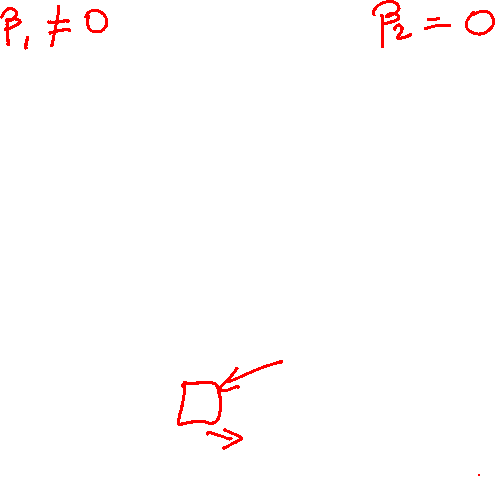 β₁ ≠ 0
β₂ = 0